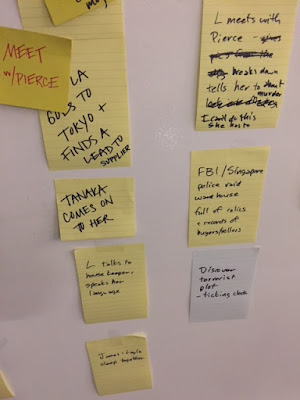 MEET
w/PIERCE
LA
GOES TO
TOKYO +
FINDS A
LEAD TO
SUPPLIER
TANAKA
COMES ON
TO HER
L talks to
house keeper,
speaks her
language
James + Layla
sleep together
L meets with
Pierce -
breaks down
tells her to
murder
I can't do this
She has to
FBI/Singapore
police raid
warehouse
full of relics
+ records of
buyers/sellers
Discover
terrorist
plot
-ticking clock